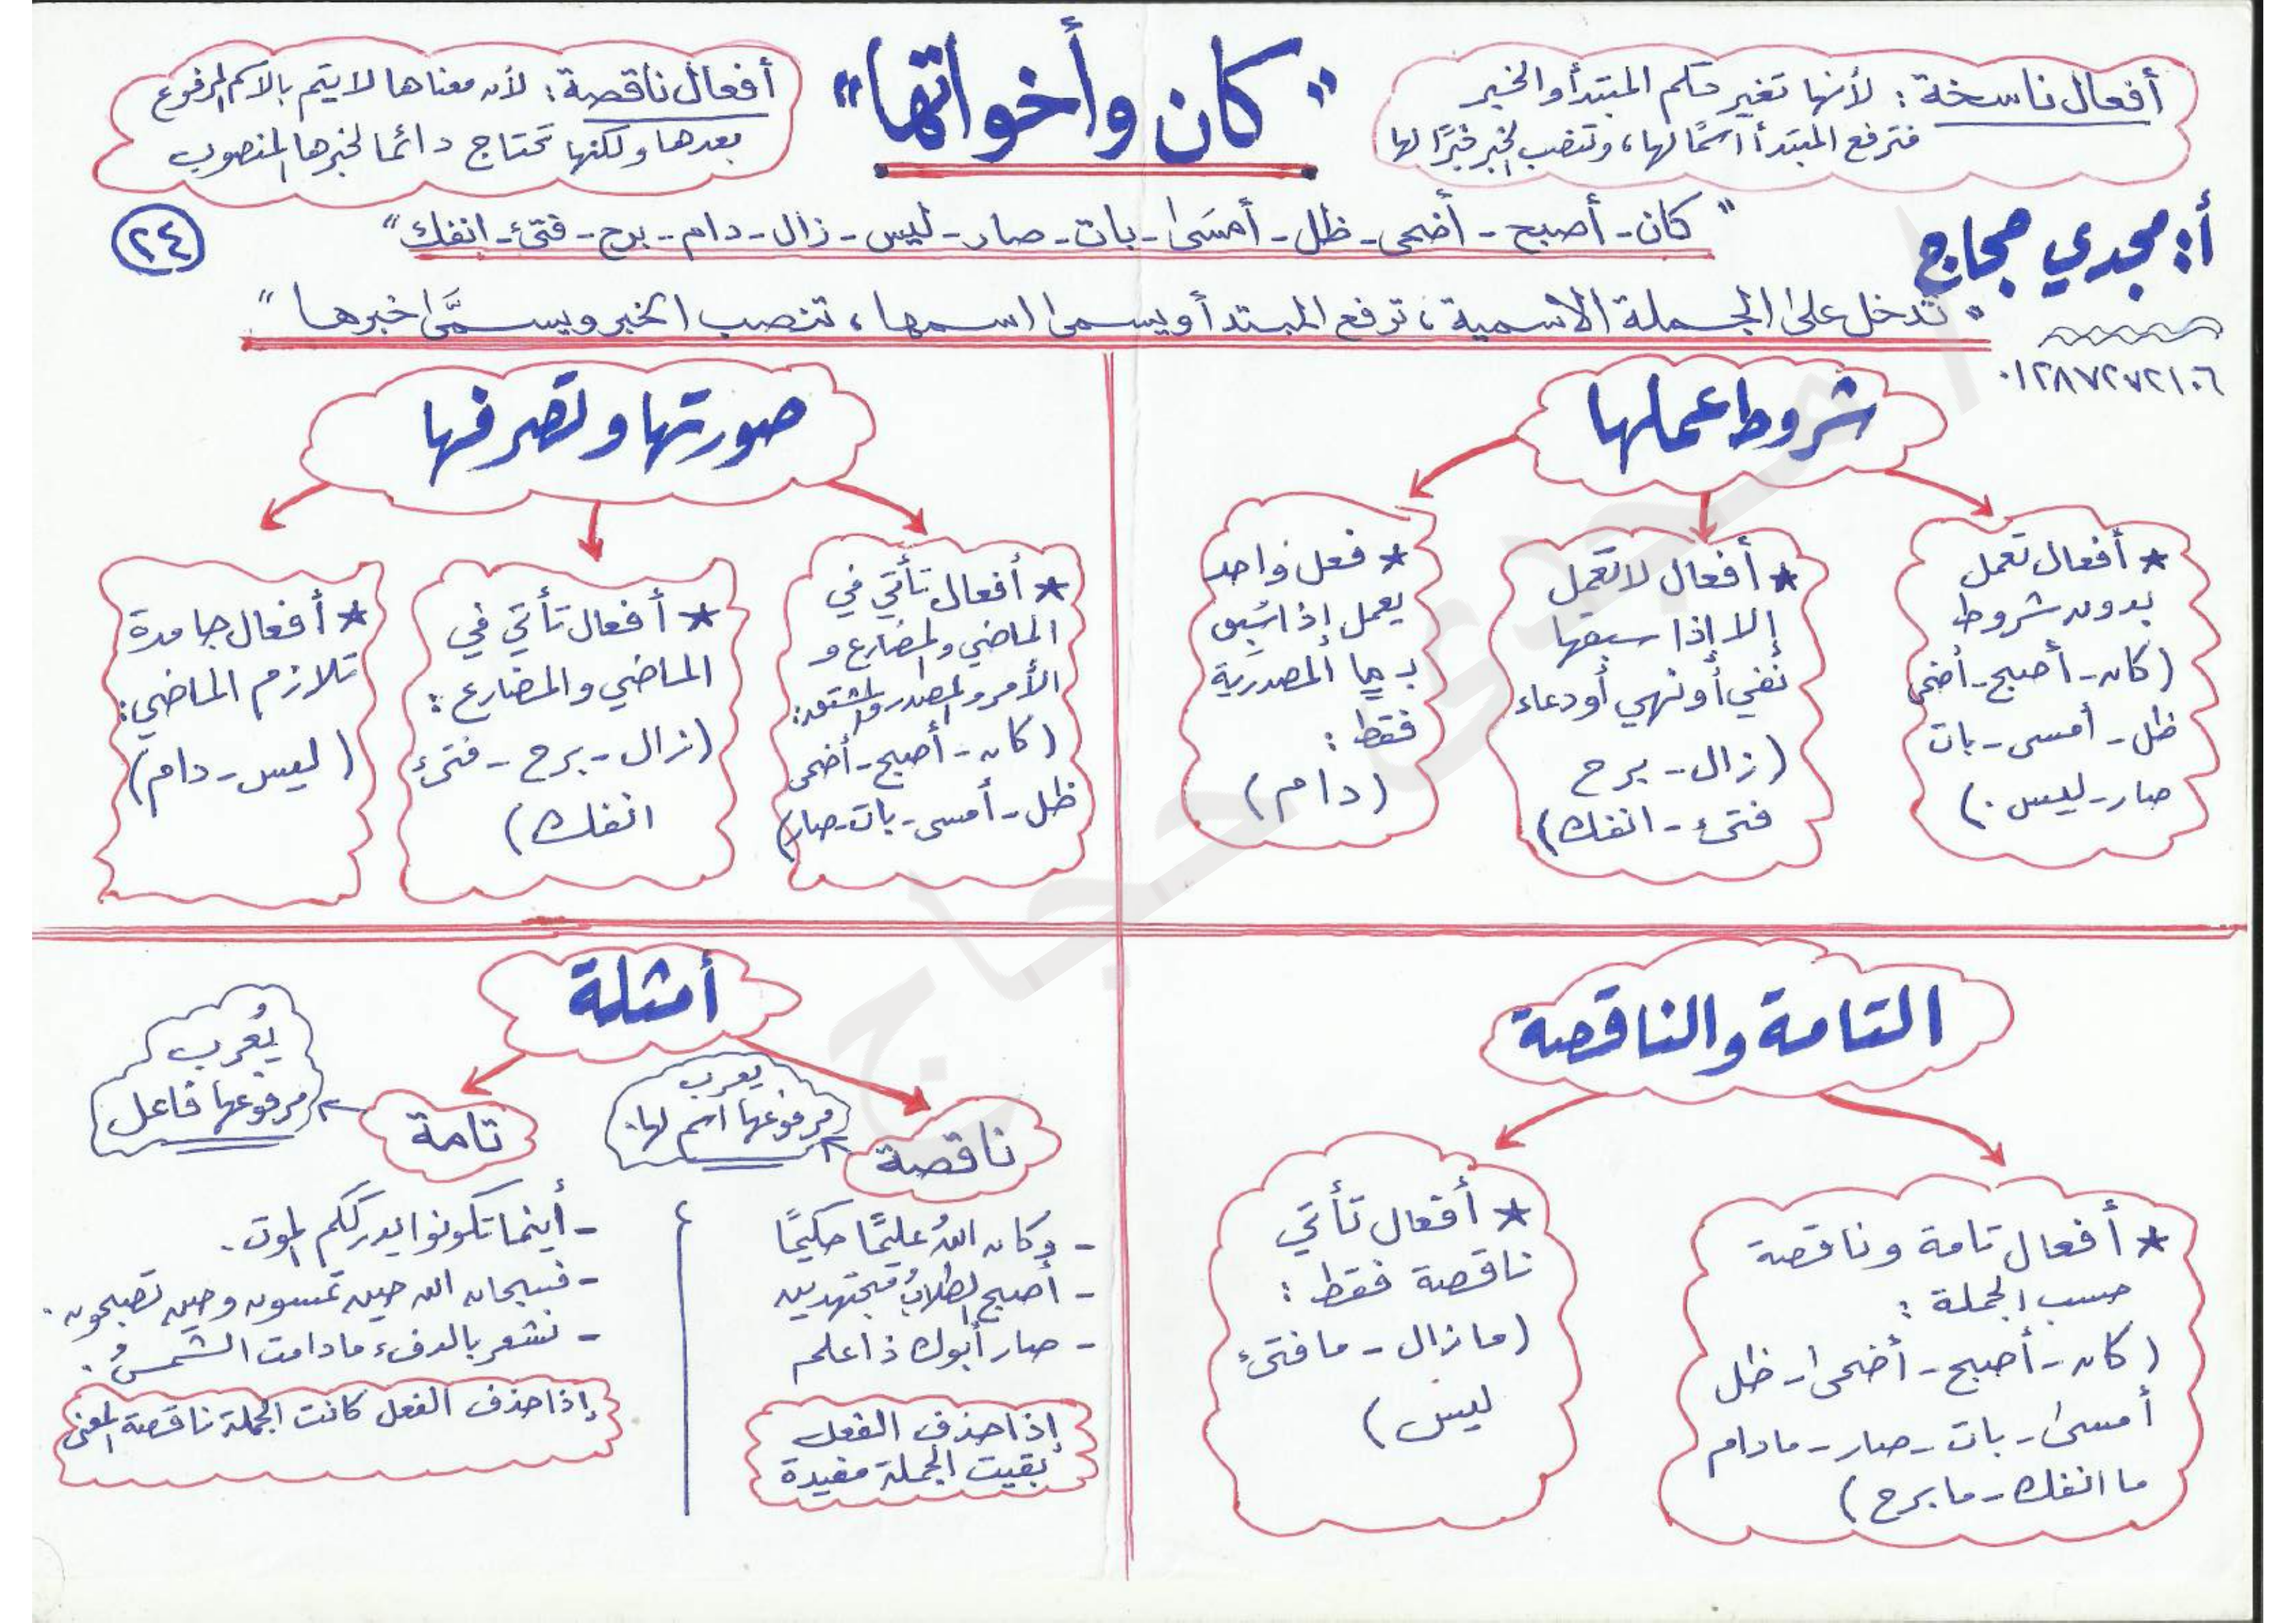 "كان وأخواتها"
أفعال ناسخة: لأنها تغير حكم المبتدأ والخبر
فترفع المبتدأ اسمًا لها، وتنصب الخبر خبرًا لها
أفعال ناقصة: لأن معناها لا يتم بالاسم المرفوع
بعدها ولكنها تحتاج دائما لخبرها المنصوب
أ: مجدي حجاج
٠١٢٨٧٢٧٢١٠٦
"كان - أصبح - أضحى - ظل - أمسى - بات - صار - ليس - زال - دام - برح - فتئ - انفك"
٢٤
"تدخل على الجملة الاسمية، ترفع المبتدأ ويسمى اسمها، تنصب الخبر ويسمَّى خبرها"
شروط عملها
* أفعال تعمل
بدون شروط
(كان - أصبح - أضحى
ظل - أمسى - بات
صار - ليس.)
* أفعال لا تعمل
إلا إذا سبقها
نفي أو نهي أو دعاء
(زال - برح
فتئ - انفك)
* فعل واحد
يعمل إذا سُبق
بـ ما المصدرية
فقط:
(دام)
صورتها وتصرفها
* أفعال تأتي في
الماضي والمضارع و
الأمر والمصدر والمشتق:
(كان - أصبح - أضحى
ظل - أمسى - بات - صار)
* أفعال تأتي في
الماضي والمضارع:
(زال - برح - فتئ
انفك)
* أفعال جامدة
تلازم الماضي:
(ليس - دام)
التامة والناقصة
* أفعال تامة وناقصة
حسب الجملة:
(كان - أصبح - أضحى - ظل
أمسى - بات - صار - مادام
ما انفك - ما برح)
* أفعال تأتي
ناقصة فقط:
(ما زال - ما فتئ
ليس)
أمثلة
ناقصة
يعرب
مرفوعها اسم لها.
- وكان اللهُ عليمًا حكيمًا
- أصبح الطلابُ مجتهدين
- صار أبوك ذا علم
إذا حذف الفعل
بقيت الجملة مفيدة
تامة
يُعرب
مرفوعها فاعل
- أينما تكونوا يدرككم الموت.
- فسبحان الله حين تمسون وحين تصبحون.
- نشعر بالدفء مادامت الشمسُ.
إذا حذف الفعل كانت الجملة ناقصة المعنى
مجدى حجاج